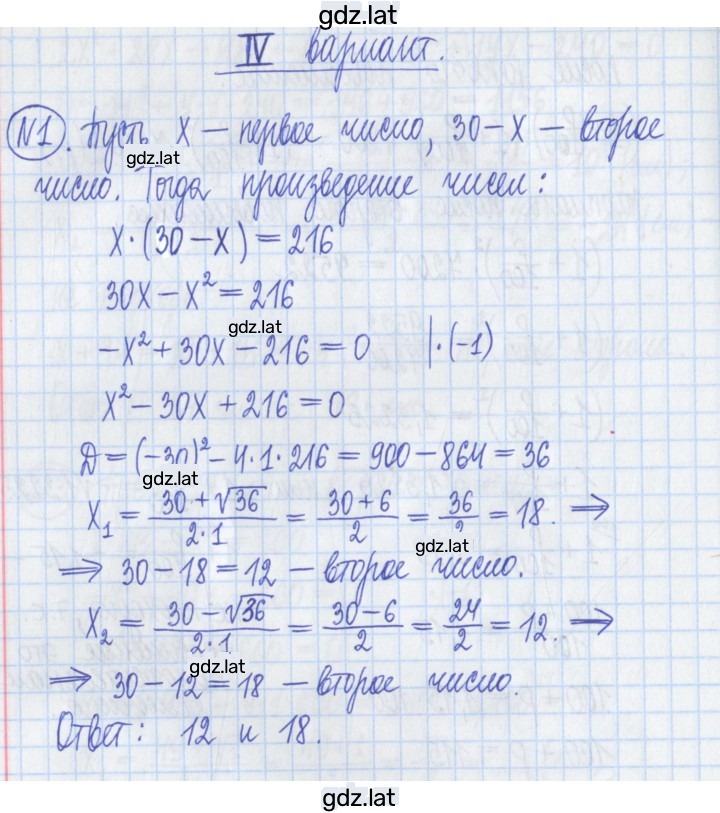 gdz.lat
IV вариант.
№1. Пусть x – первое число, 30 – x – второе
gdz.lat
число. Тогда произведение чисел:
x·(30 – x) = 216
30x – x² = 216
gdz.lat
–x² + 30x – 216 = 0 |·(–1)
x² – 30x + 216 = 0
Д = (–30)² – 4·1·216 = 900 – 864 = 36
gdz.lat
x₁ = (30 + √36)/(2·1) = (30 + 6)/2 = 36/2 = 18. ⇒
gdz.lat
⇒ 30 – 18 = 12 – второе число.
x₂ = (30 – √36)/(2·1) = (30 – 6)/2 = 24/2 = 12. ⇒
gdz.lat
⇒ 30 – 12 = 18 – второе число.
Ответ: 12 и 18.
gdz.lat